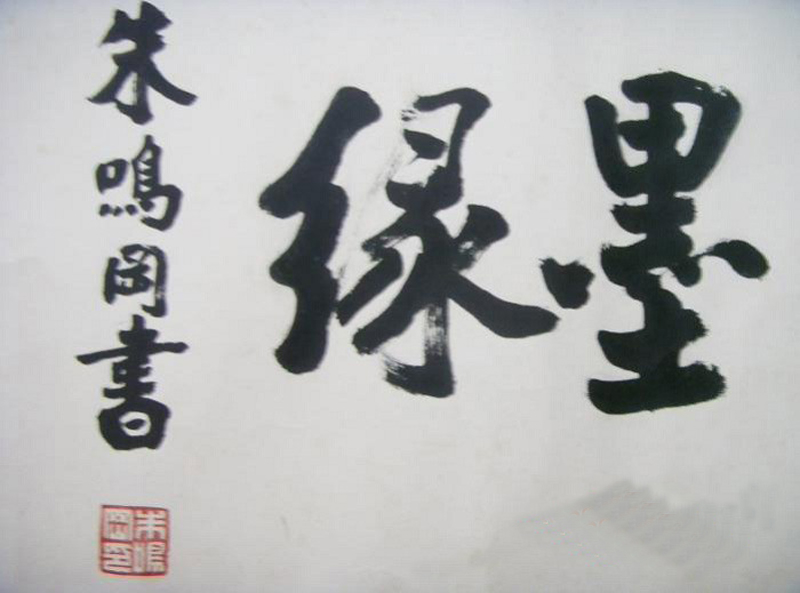 墨緣
朱鳴岡書
朱鳴岡印